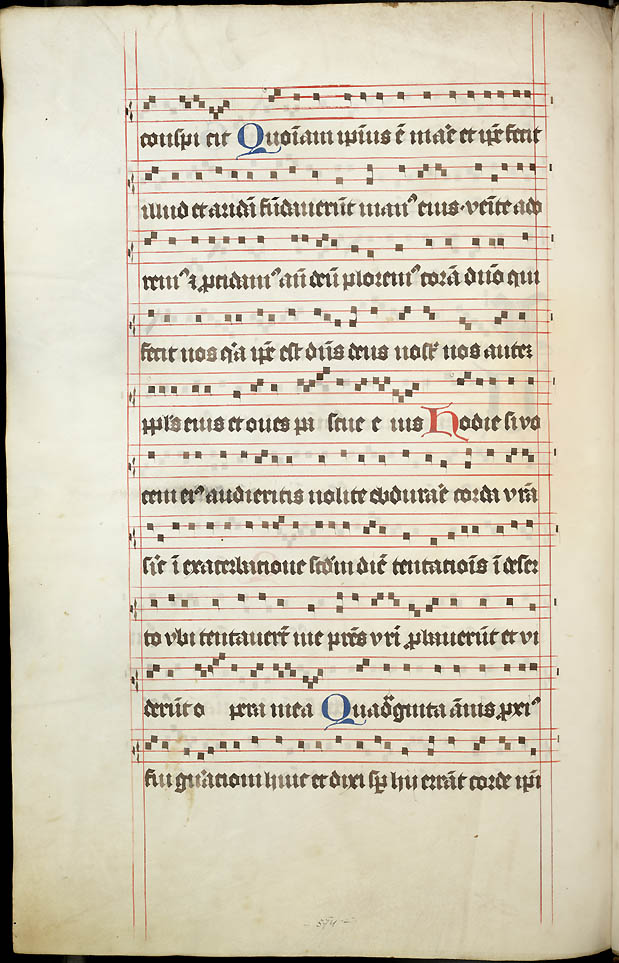 conspi cit Quoīam ip̄ius ē mar̄e et ip̄e fecit
illud et aridā fūdaverūt manꝰ eius·venīte ado
remꝰ ⁊ ꝓcidamꝰ añ deū ploremꝰ corā dño qui
fecit nos q̄a ip̄e est dñs deus nostr̄ nos autez
ppl̄s eius et oues pa scue e ius Hodie si vo
cem eiꝰ audieritis nolite obdurar̄e corda vrā
sic̄ ī exacerbatione scdm diē tentatiōis ī deser
to vbi tentauerūt me prēs vrī ꝓbauerūt et vi
derūt o pera mea Quadrāginta ānis ꝓxiꝰ
fui gn̄ationi huic et dixi sp̄ hii errāt corde ip̄i